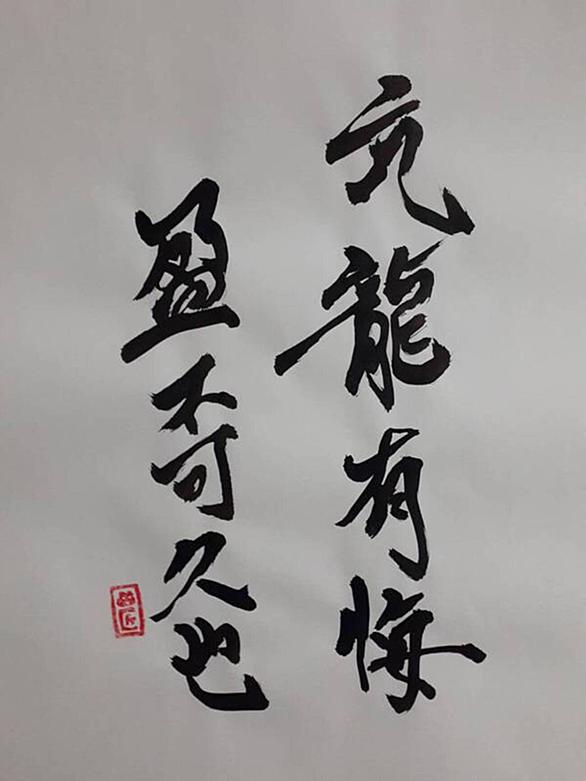 亢龍有悔
盈不可久也